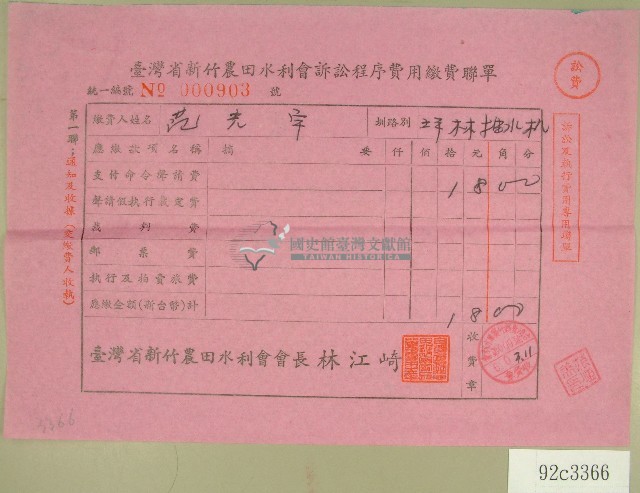 臺灣省新竹農田水利會訴訟程序費用繳費聯單
訟費
統一編號 № 000903 號
第一聯：通知及收據（交繳費人收執）
訴訟及執行費用專用聯單
繳費人姓名 范光宗 圳路別
應繳款項名稱 摘要 仟 佰 拾 元 角 分
支付命令聲請費 1 8 0 0
聲請假執行裁定費
裁判費
郵票費
執行及拍賣旅費
應繳金額(新台幣)計 1 8 0 0
國史館臺灣文獻館
TAIWAN HISTORICA
臺灣省新竹農田水利會會長 林江崎
收費章
3.11
3366
92c3366